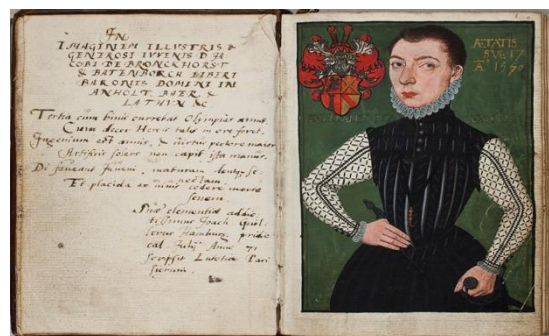 IN
IMAGINEM ILLUSTRIS &
GENEROSI IUVENIS D. IA
COBI DE BRONCKHORST
& BATENBORCH LIBERI
BARONIS DOMINI IN
ANHOLT, BAER, &
LATHUM &c
Tertia cum binis currebat Olympias annis,
Cum decor Heroi talis in ore foret.
Ingenium annis, & pectore maior
Artificis solers non capit ista manus.
Di faveant iuveni, maturam
Et placida ac nimis cedere morte
senem.
Suae clementiae addic
tissimus Joach.
Hamburg. pridie
cal. Julij Anno 71
scripsit Lutetiae Pari
siorum.
ÆTATIS
SVÆ 17
Aº 1570